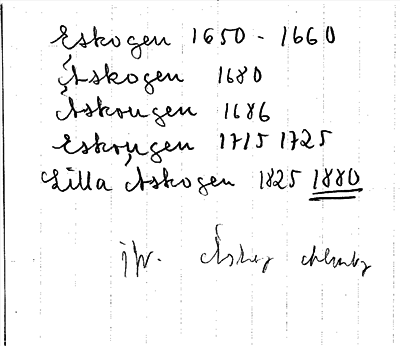 Eskogen 1650 - 1660
Äskogen 1680
Äskougen 1686
Eskougen 1715 1725
Lilla Äskogen 1825 1880
jfr.